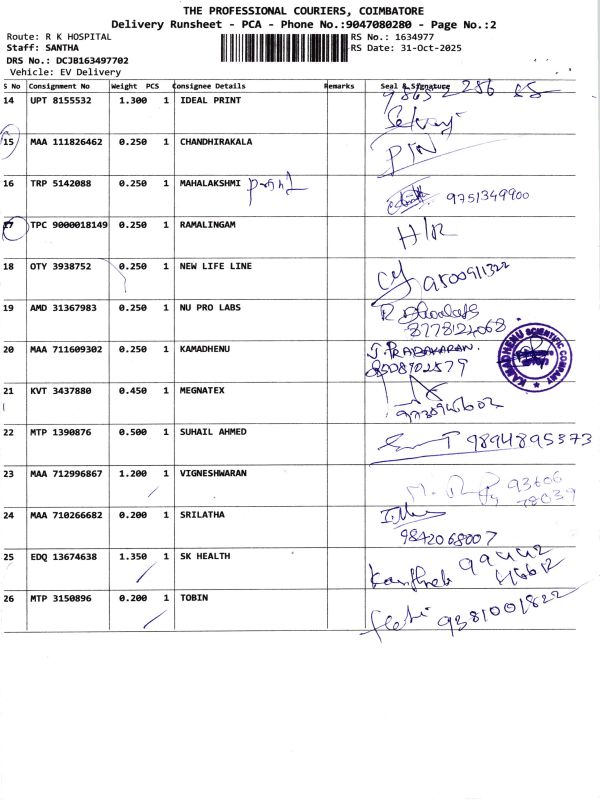 THE PROFESSIONAL COURIERS, COIMBATORE
Delivery Runsheet - PCA - Phone No.:9047080280 - Page No.:2
Route: R K HOSPITAL RS No.: 1634977
Staff: SANTHA RS Date: 31-Oct-2025
DRS No.: DCJB163497702
Vehicle: EV Delivery
S No Consignment No Weight PCS Consignee Details Remarks Seal & Signature
14 UPT 8155532 1.300 1 IDEAL PRINT
15 MAA 111826462 0.250 1 CHANDHIRAKALA
16 TRP 5142088 0.250 1 MAHALAKSHMI 9751349900
17 TPC 9000018149 0.250 1 RAMALINGAM
18 OTY 3938752 0.250 1 NEW LIFE LINE 9500911322
19 AMD 31367983 0.250 1 NU PRO LABS
20 MAA 711609302 0.250 1 KAMADHENU J. PRABAKARAN.
KAMADHENU SCIENTIFIC COMPANY
21 KVT 3437880 0.450 1 MEGNATEX
22 MTP 1390876 0.500 1 SUHAIL AHMED 9894895373
23 MAA 712996867 1.200 1 VIGNESHWARAN
24 MAA 710266682 0.200 1 SRILATHA
9842068007
25 EDQ 13674638 1.350 1 SK HEALTH
26 MTP 3150896 0.200 1 TOBIN 9381001822